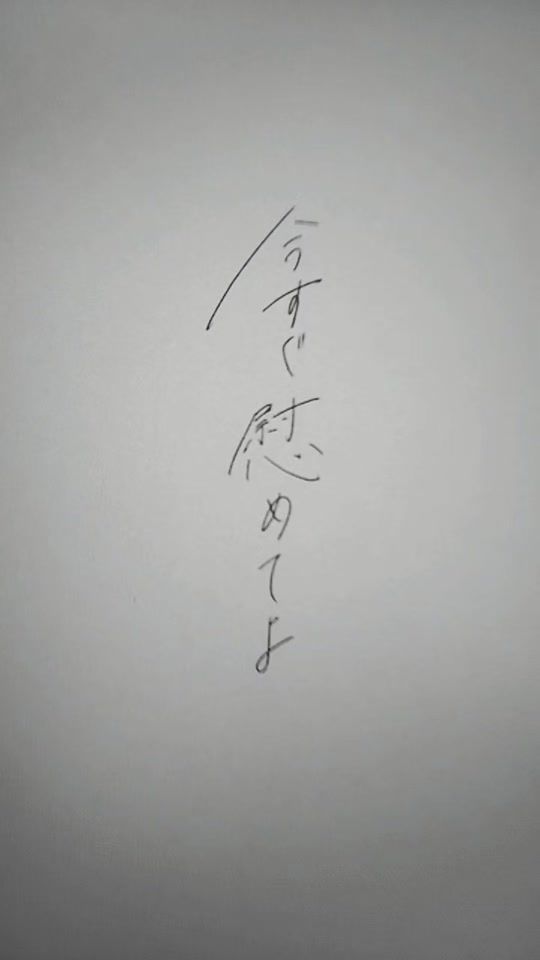 今すぐ慰めてよ